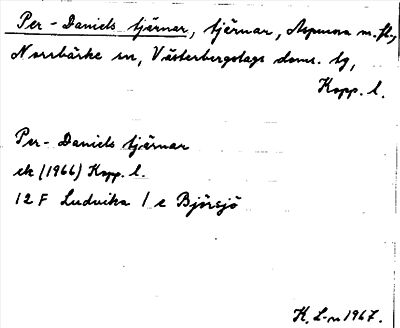 Per-Daniels tjärnar, tjärnar, Aspnora m. fl.,
Norrbärke sn, Västerbergslags doms. tg,
Kopp. l.
Per-Daniels tjärnar
ek (1966) Kopp. l.
12 F Ludvika 1 e Björsjö
K. L-n 1967.